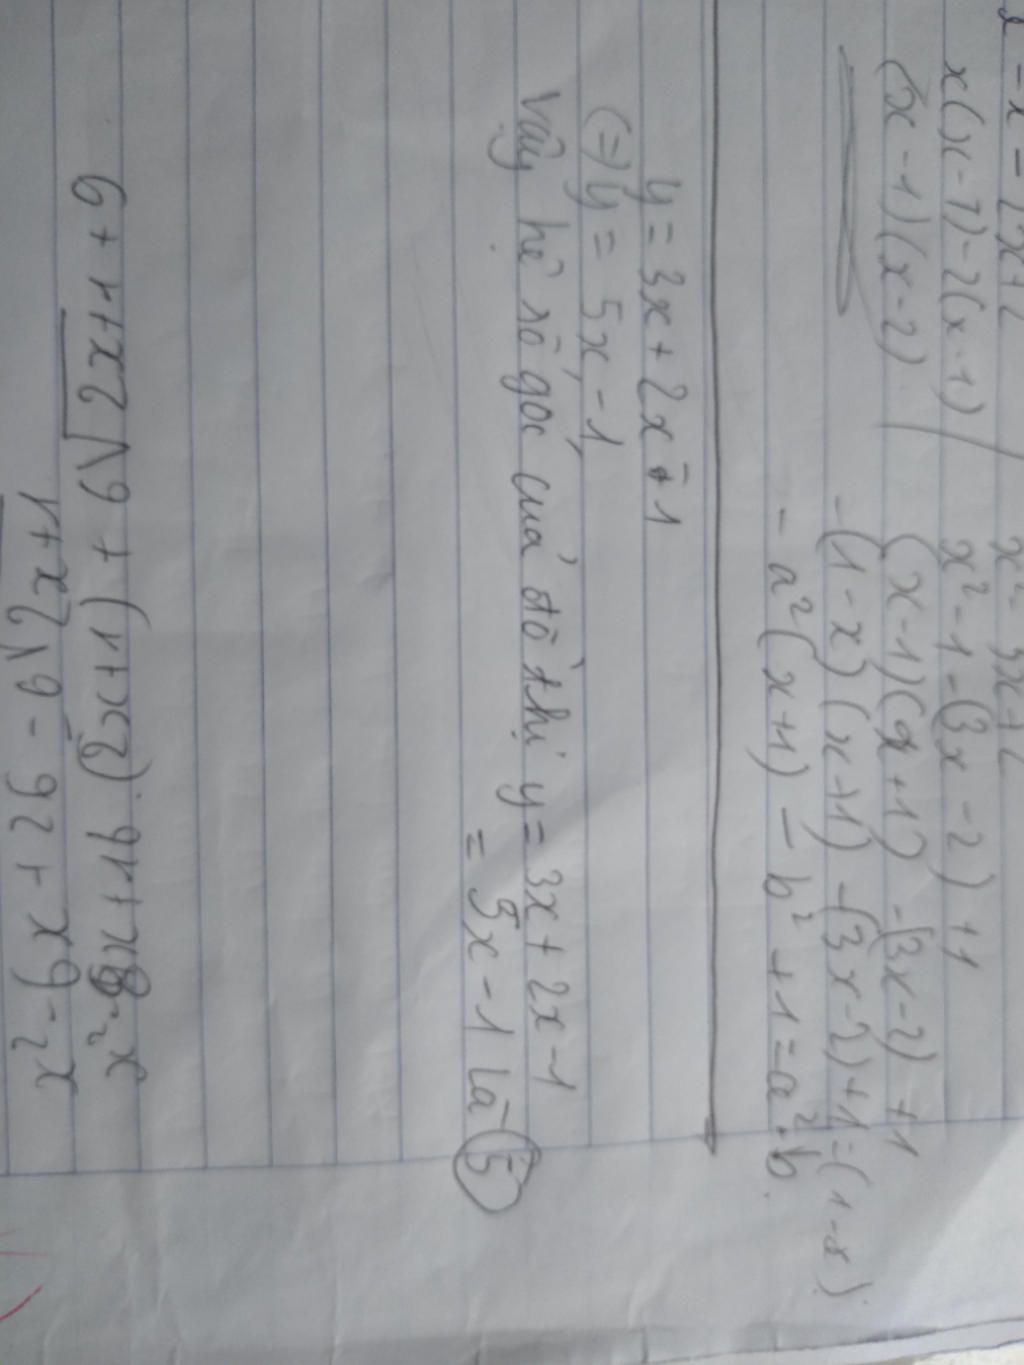 x(x-1)-2(x-1)
(x-1)(x-2)
x² - 3x+2
x² - 1 - (3x - 2) + 1
(x-1)(x+1) - (3x-2) + 1
-(1-x)(x+1) - (3x-2)+1 = (1-x)
- a²(x+1) - b² + 1 = a².b.
y = 3x + 2x - 1
(=) y = 5x - 1
Vậy hệ số góc của đồ thị y = 3x + 2x - 1
= 5x - 1 là 5
x² - 8x + 16 . (2x+1) + 6√2x+1 + 9
x² - 6x + 26 - 6√2x+1